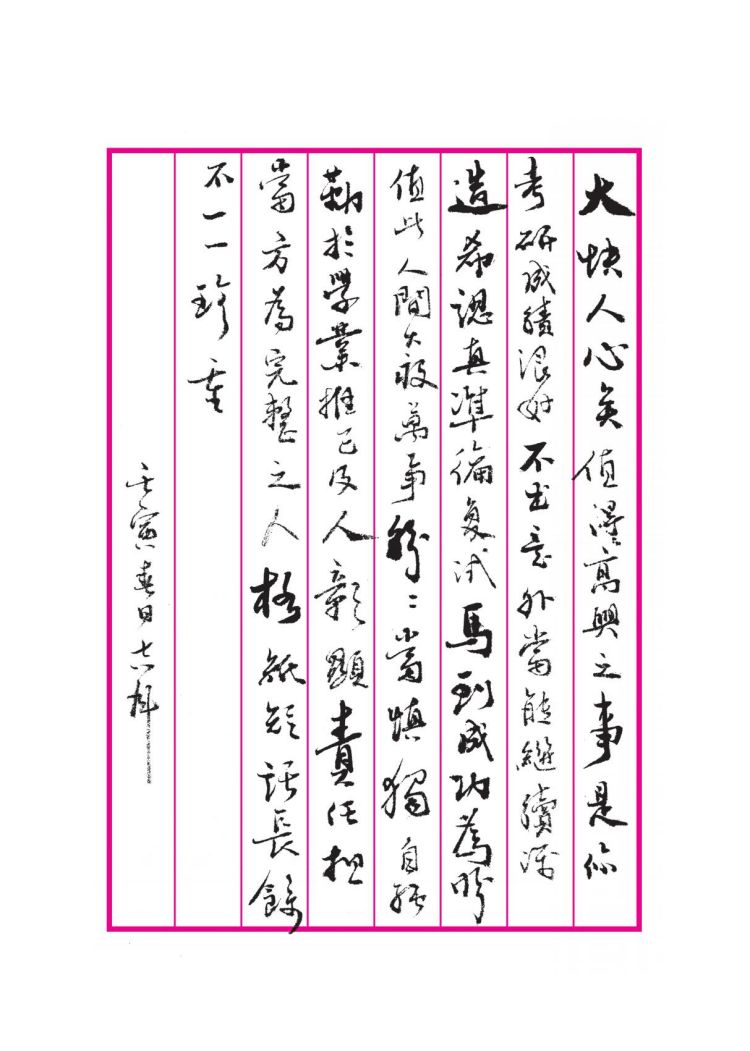 大快人心矣值得高興之事是你
考研成績很好不出意外當能繼續深
造希認真準備复试馬到成功為盼
值此人間大疫萬事紛〻當慎獨自強
勤於學業推己及人彰顯責任担
當方為完整之人格紙短話長餘
不一一珍重
壬寅春日